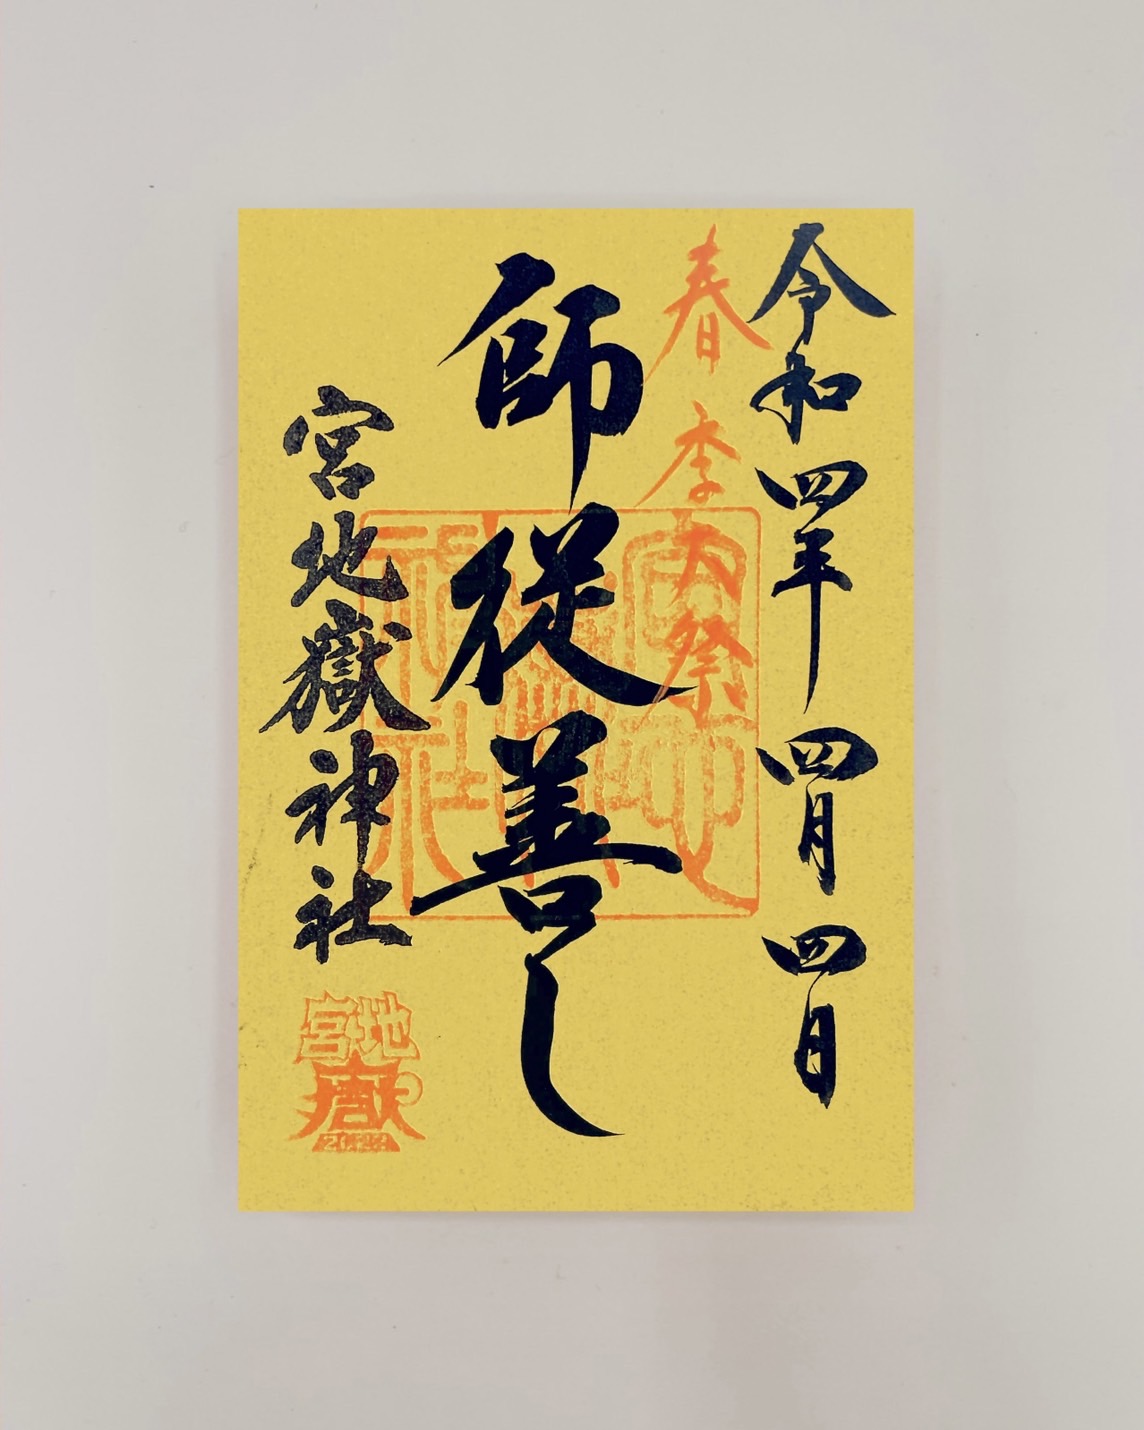 令和四年 四月 四日
春季大祭
師従善し
宮地嶽神社
宮地嶽神社
宮地
嶽
2022